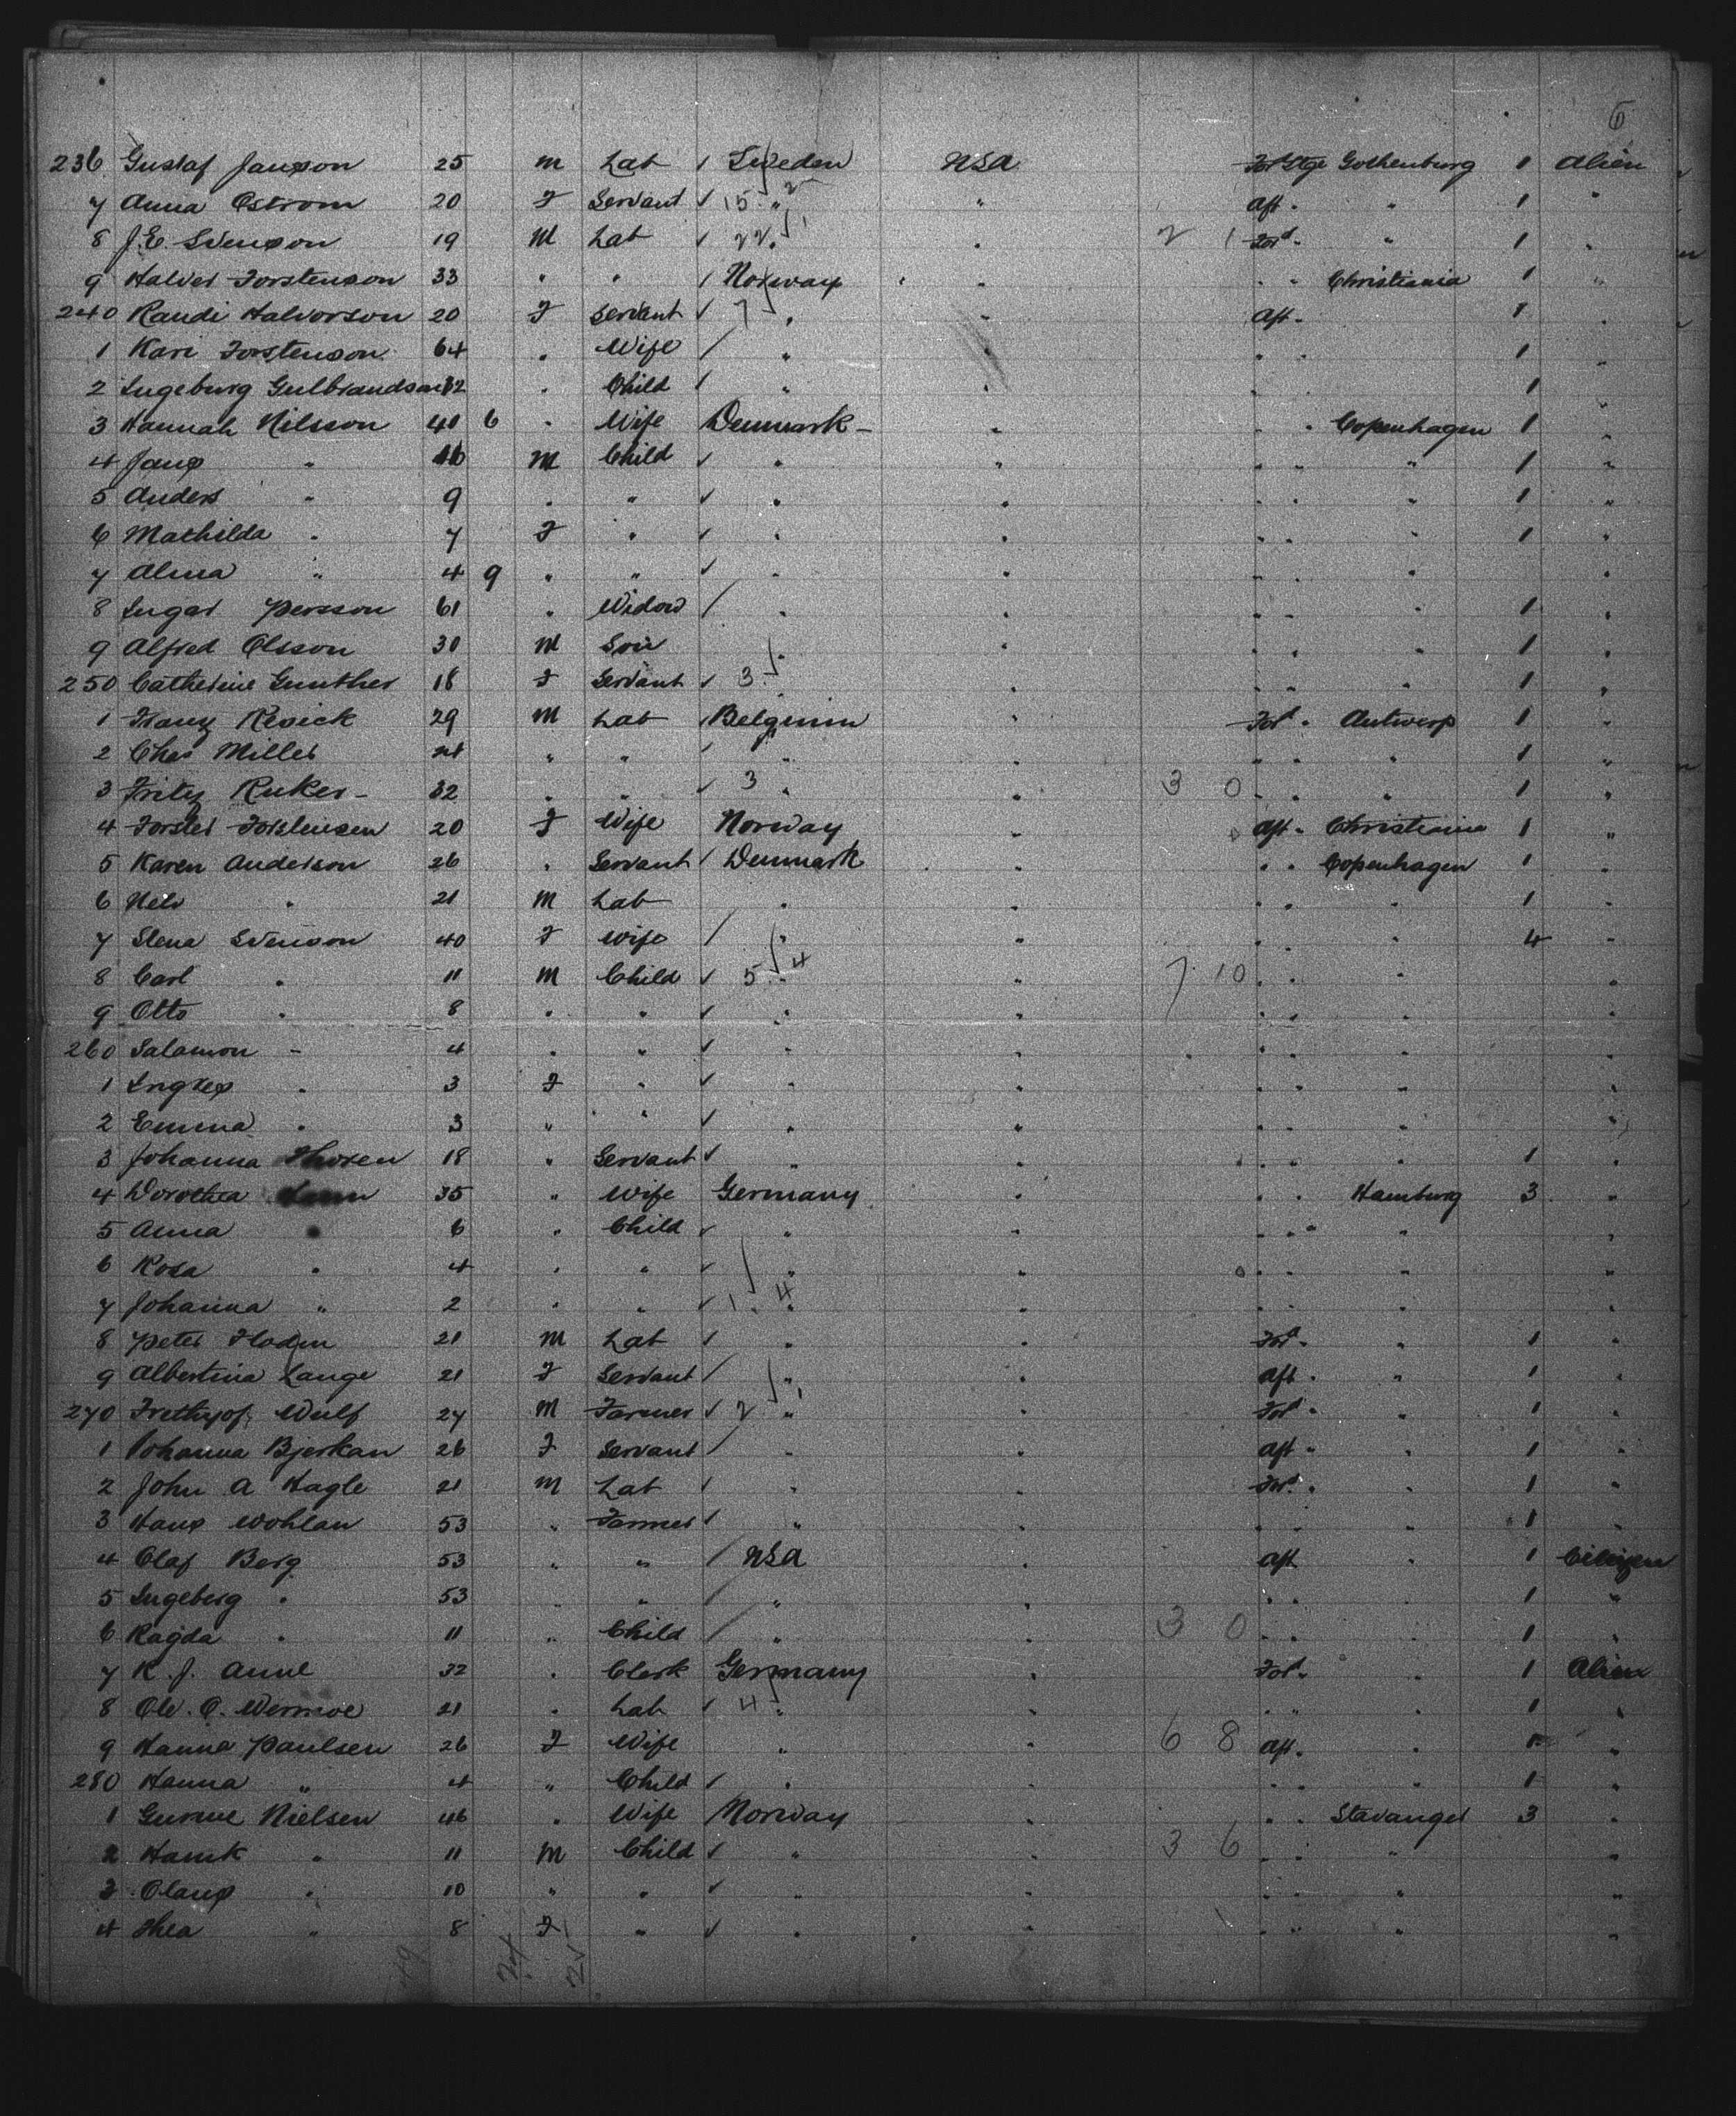 6
236 Gustaf Janson 25 M Lab / Sweden USA For Stge Gothenburg 1 Alien
7 Anna Ostrom 20 F Servant ✓ 15 " 2 " Aft " " 1 "
8 J.E. Svenson 19 M Lab ✓ 22 " 1 " 2 1 For " " 1 "
9 Halver Torstenson 33 " " / Norway " " " Christiania 1 "
240 Randi Halvorson 20 F Servant ✓ 7 " " Aft " 1 "
1 Kari Torstenson 64 " Wife / " " " " 1 "
2 Ingeburg Gulbrandson 32 " Child / " " " 1 "
3 Hannah Nilsson 40 6 " Wife Denmark " " " Copenhagen 1 "
4 Jans " M Child ✓ " " " " " 1 "
5 Anders " 9 " " ✓ " " " " " 1 "
6 Mathilda " 7 F " ✓ " " " " " 1 "
7 Alma " 4 9 " " ✓ " " " " " "
8 Ingar Persson 61 " Widow / " " " " " 1 "
9 Alfred Olsson 30 M Son " " " " " 1 "
250 Catherine Gunther 18 F Servant ✓ 3 " " " " " 1 "
1 Franz Resick 29 M Lab / Belgium " For " Antwerp 1 "
2 Chas Miller 24 " " / " " " " " 1 "
3 Fritz Ruker 32 " " ✓ 3 " " 3 0 " " " 1 "
4 Torster Torstensen 20 F Wife Norway " Aft " Christiania 1 "
5 Karen Anderson 26 " Servant / Denmark " " " Copenhagen 1 "
6 Nels " 21 M Lab " " " " " 1 "
7 Stena Svenson 40 F Wife / " " " " " 4 "
8 Carl " 11 M Child ✓ 5 " 4 " 7 10 " " " "
9 Otto " 8 " " ✓ " " " " " "
260 Salamon " 4 " " ✓ " " " " " "
1 " 3 F " ✓ " " " " " "
2 Emma " 3 " " ✓ " " " " " "
3 Johanna Thosen 18 " Servant ✓ " " " " " 1 "
4 Dorothea 35 " Wife Germany " " " Hamburg 3 "
5 Anna " 6 " Child ✓ " " " " " "
6 Rosa " 4 " " ✓ " " " " " "
7 Johanna " 2 " " ✓ 1 " 4 " " " " "
8 Peter Floden 21 M Lab ✓ " " For " " 1 "
9 Albertina Lange 21 F Servant / " " Aft " " 1 "
270 Frethyof Wulf 24 M Farmer ✓ 2 " 1 " For " " 1 "
1 Johanna Bjerkan 26 F Servant / " " Aft " " 1 "
2 John A Hagle 21 M Lab ✓ " " For " " 1 "
3 Hans Wohlan 53 " Farmer / " " " " " 1 "
4 Olaf Berg 53 " " / USA " Aft " 1 Citizen
5 Ingeberg " 53 " " / " " " " 1 "
6 Ragda " 11 " Child / " " 3 0 " " " 1 "
7 K. J. Anne 32 " Clerk Germany " For " " 1 Alien
8 Ole. O. Wermoe 21 " Lab ✓ 4 " " " " 1 "
9 Hanna Paulsen 26 F Wife " " 6 8 Aft " " 1 "
280 Hanna " 4 " Child ✓ " " " " " 1 "
1 Gunnne Nielsen 46 " Wife / Norway " " " Stavanger 3 "
2 Hamk " 11 M Child ✓ " " 3 6 " " " "
3 Olans " 10 " " ✓ " " " " " "
4 Thea " 8 F " ✓ " " " " " "